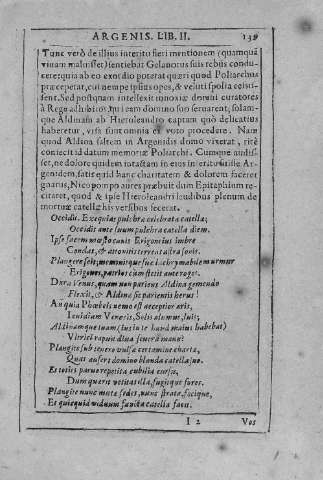 ARGENIS. LIB. II. 139
Tunc verò de illius interitu fieri mentionem (quamquā
vivam maluisset) sentiebat Gelanorus suis rebus condu-
cere: quia ab eo exordio poterat quæri quod Poliarchus
præceperat, cui nempe ipsius opes, & veluti spolia cessis-
sent. Sed postquam intellexit innoxiæ domini curatores
à Rege adhibitos Aui eam domino suo servarent, solam-
que Aldinam ab Hieroleandro captam quò delicatius
haberetur, visa sunt omnia ex voto procedere. Nam
quod Aldina saltem in Argenidis domo viveret, ritè
coniecit id datum memoriæ Poliarchi. Cumque audis-
set, ne dolore quidem totastam in eius interitu fuisse Ar-
genidem, satis quid hanc charitatem & dolorem faceret
gnarus, Nicopompo aures præbuit dum Epitaphium re-
citaret, quod & ipse Hieroleandri laudibus plenum de
mortuæ catellæ his versibus fecerat.
Occidit. Exequias pulchræ celebrate catellæ;
Occidit ante suum pulchra catella diem.
Ipse suum mæsto canis Erigonius imbre
Condat, & attonitis terreat astra sonis.
Plangere scit, meminitque suæ lachrymabile murmur
Erigones, patrios cum stetit ante rogos.
Dura Venus, quam non pariens Aldina gemendo
Flexit, & Aldinæ sic parientis herus!
An quia Phœbeis nemo est acceptior aris,
Invidiam Veneris, Solis alumnus, luis;
Aldinamque tuam (ius in te haud maius habebat)
Vltrici rapuit diva severa manu?
Plangite sub tenero vulsæ certamine charta,
Quas aufert domino blanda catella suo.
Et toties parvo repetita cubilia cursu,
Dum quærit vetita, fugitque fures.
Plangite nunc mutæ sedes, nunc strata, facique,
Et quicquid viduum sancta catella facis.
I 2 Vos